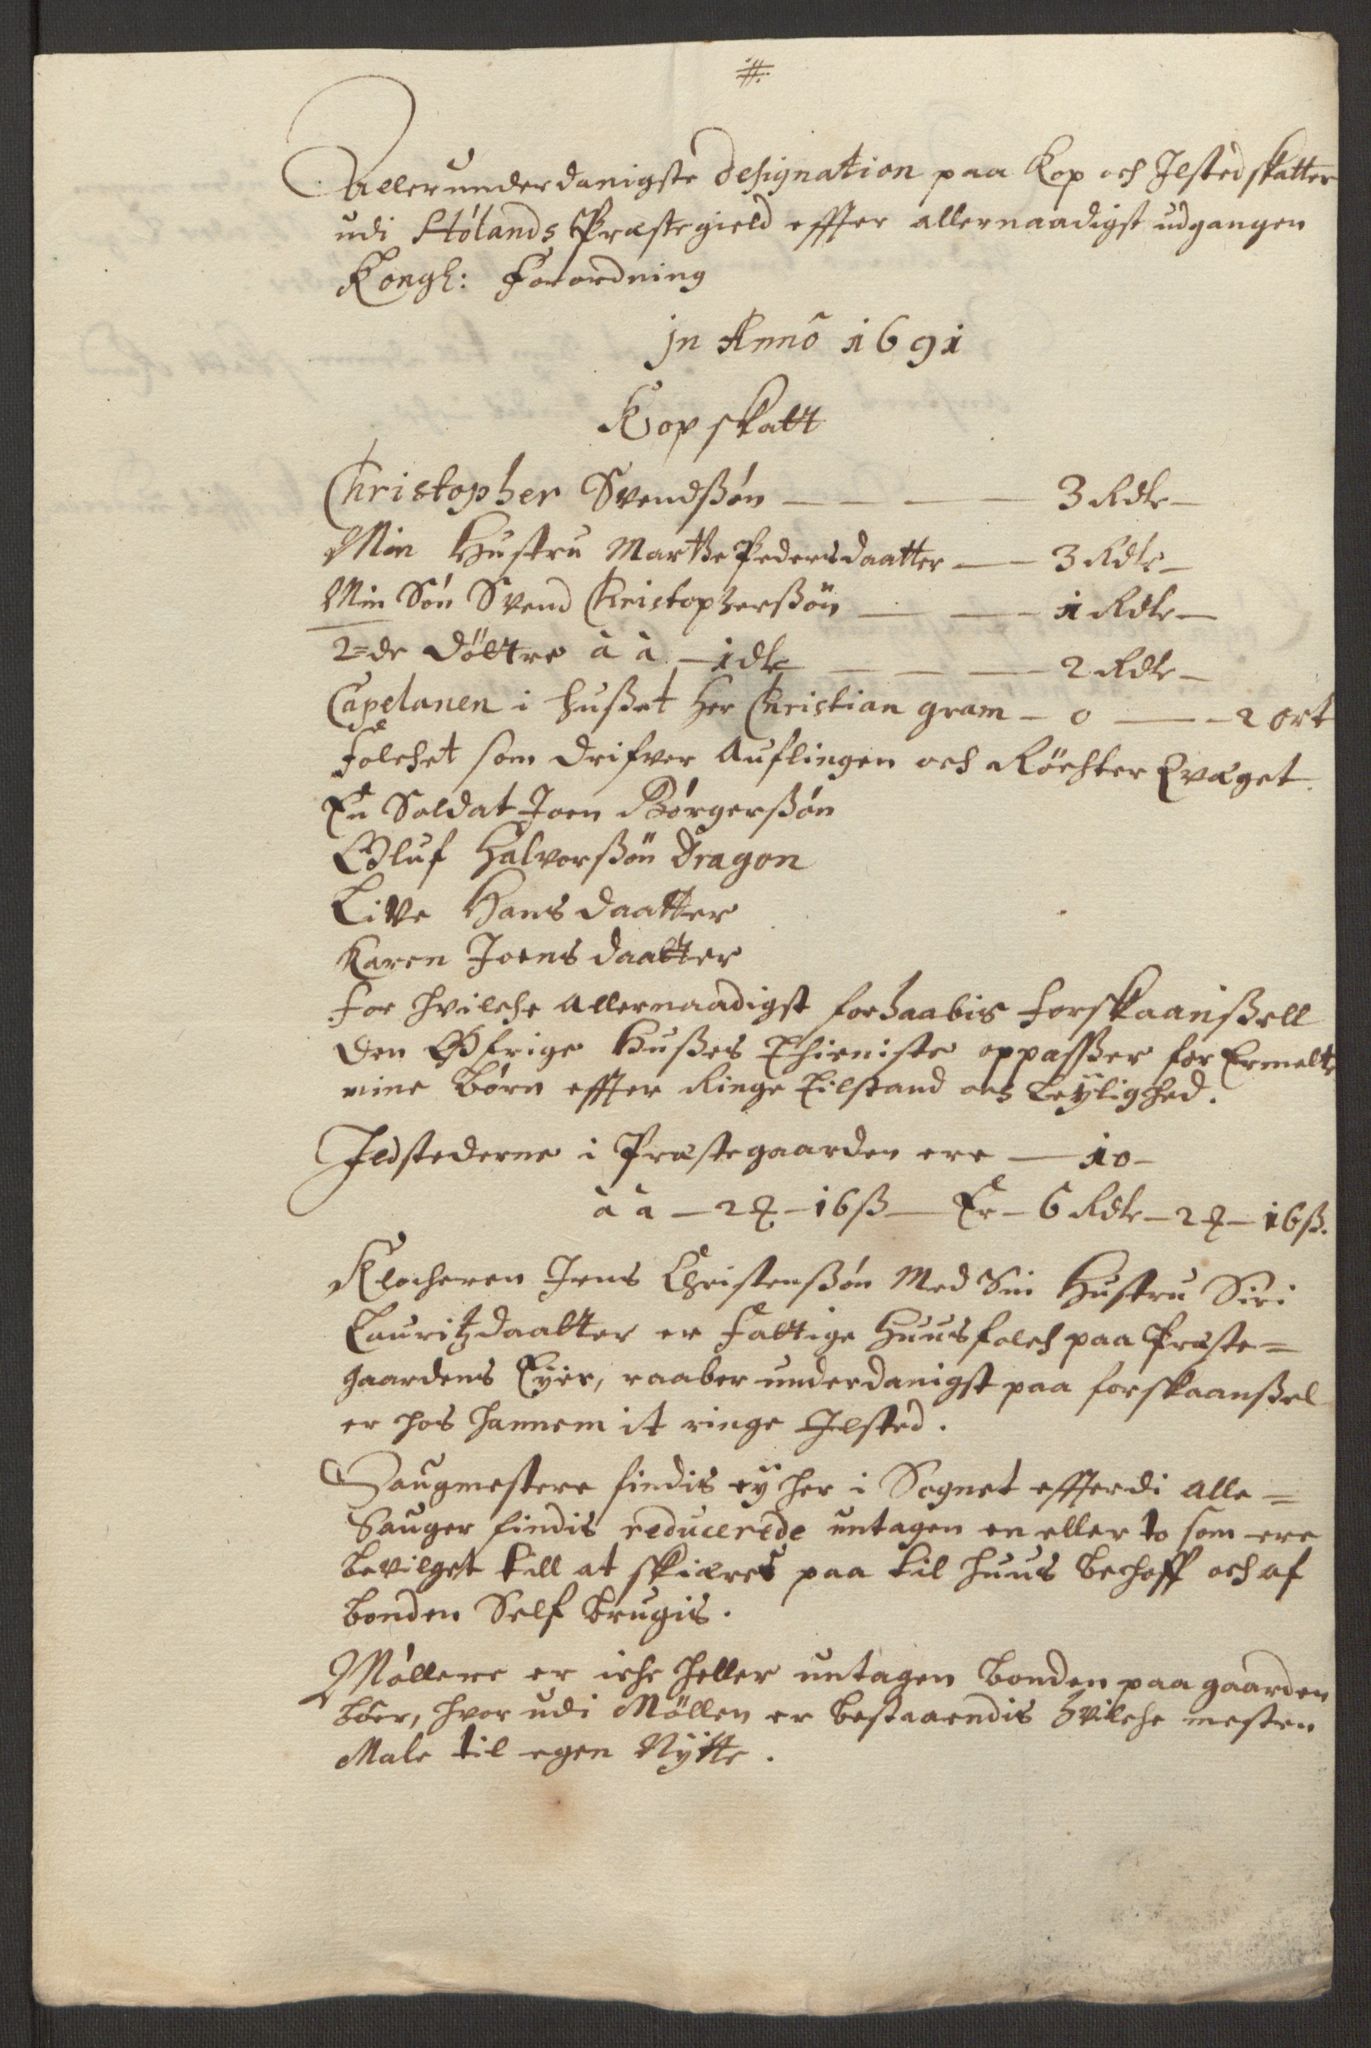 #
Allerunderdanigste designation paa Kop och Jlstedskatter
udi Hølands Præstegield effter allernaadigst udgangen
Kongl: Forordning
jn Anno 1691
Kop skatt
Christopher Svendssøn — 3 Rdlr —
Min Hustru Marthe Pedersdaatter — 3 Rdlr —
Min Søn Svend Christopherssøn — 1 Rdlr —
2=de døttre à à — 1 dlr — 2 Rdlr —
Capelanen i husset Her Christian gram — 0 — 2 ort
Folchet som drifver Auflingen och Røchter Qvæget.
En Soldat Joen Børgerssøn
Oluf Halvorssøn Dragon
Live Hansdaatter
Karen Joensdaatter
For hvilche allernaadigst forhaabis forskaanssell
den Øfrige Husses Thieniste oppasser for Ermelte
mine børn effter Ringe Tilstand och Leylighed.
Jldstederne i Præstegaarden ere — 10 —
à à — 2 ꝶ — 16 ß — Er — 6 Rdlr — 2 ꝶ — 16 ß.
Klocheren Jens Christenssøn Med Sin Hustru Siri
Lauritzdaatter er Fattige Huusfolch paa Præste=
gaardens Eyer, raaber underdanigst paa forskaanssel
er hos hannem it ringe Jlsted.
Saugmestere findis ey her i Sognet efftterdi alle=
Sauger findis reducerede untagen en eller to som ere
bevilget till at skiæres paa til huus behoff och af
bonden Self brugis.
Møllere er iche heller untagen bonden paa gaarden
boer, hvor udi Møllen er bestaaendis hvilche mesten
Male til egen Nytte.